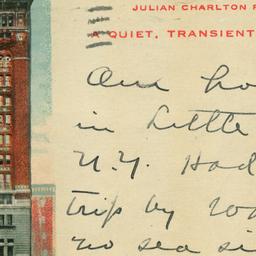 JULIAN CHARLTON
A QUIET, TRANSIENT
Our
in Little
N.Y. Had
trip by
no sea